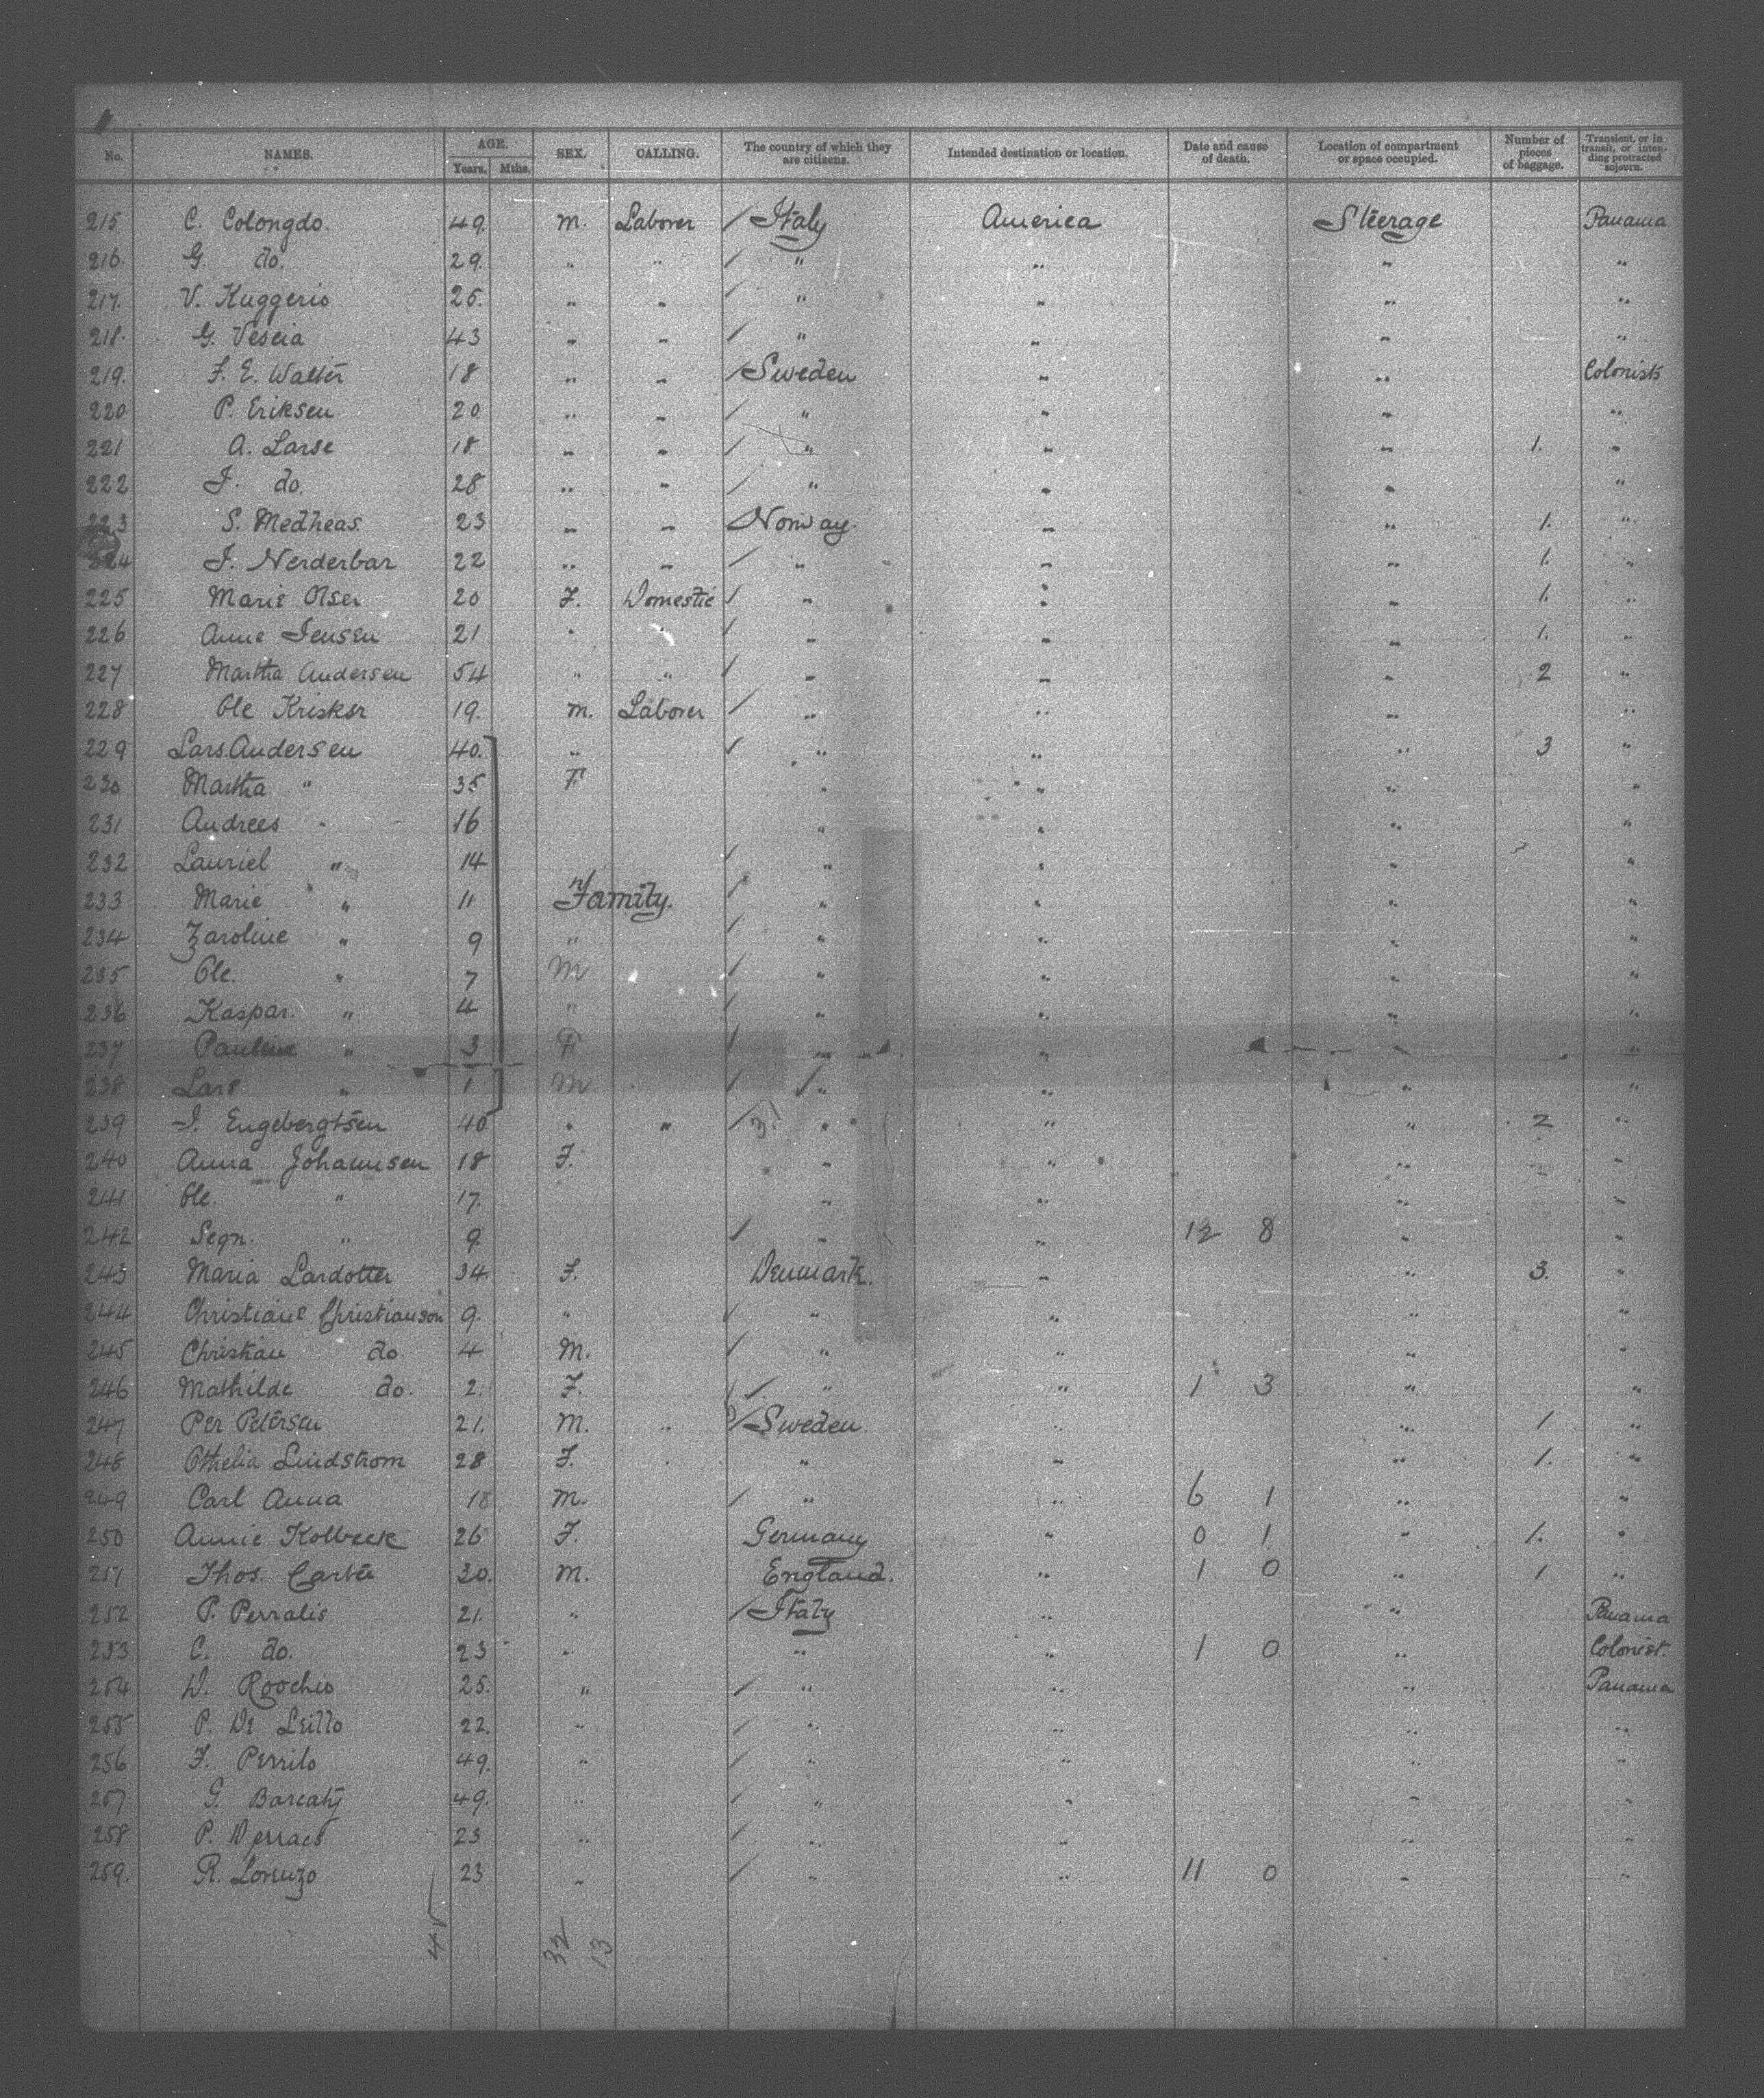 No. NAMES. AGE. Years. Mths. SEX. CALLING. The country of which they are citizens. Intended destination or location. Date and cause of death. Location of compartment or space occupied. Number of pieces of baggage. Transient, or in transit, or intending protracted sojourn.
215 C. Colongdo. 49. M. Laborer / Italy America Steerage Panama
216 G. do. 29. " " / " " " "
217. V. Kuggerio 25. " " / " " " "
218. G. Vescia 43 " " / " " " "
219. F. E. Walter 18 " " / Sweden " " Colonists
220 P. Eriksen 20 " " / " " " "
221 A. Larse 18 " " / " " " 1. "
222 J. do. 28 " " / " " " "
223 S. Medheas. 23 " " Norway. " " 1. "
224 J. Nerderbar 22 " " / " " " 1. "
225 Marie Olsen 20 F. Domestic / " " " 1. "
226 Anne Jensen 21 " " / " " " 1. "
227 Martha Andersen 54 " " / " " " 2 "
228 Ole Krisker 19. M. Laborer / " " " "
229 Lars Andersen 40. " / " " " 3 "
230 Martha " 35 F. " " " "
231 Andrees " 16 " " " "
232 Lauriel " 14 / " " " "
233 Marie " 11 Family. / " " " "
234 Zaroline " 9 " / " " " "
235 Ole. " 7 M / " " " "
236 Kaspar. " 4 " / " " " "
237 Pauline " 3 F / " " " "
238 Lars " 1 M / " " " "
239 J. Engebergtsen 40 " " / " " " 2 "
240 Anna Johannsen 18 F. " " " " "
241 Ole. " 17. " " " "
242 Segn. " 9. / " " 12 8 " "
243 Maria Lardotter 34 F. Denmark. " " 3. "
244 Christiane Christianson 9. " / " " " "
245 Christian do 4 M. / " " " "
246 Mathilde do. 2. F. / " " 1 3 " "
247 Per Petersen 21. M. " / Sweden " " 1 "
248 Othelia Lindstrom 28 F. " " " 1. "
249 Carl Anna 18 M. / " " 6 1 " "
250 Annie Kolbeck 26 F. Germany " 0 1 " 1. "
251 Thos. Carter 30. M. England. " 1 0 " 1 "
252 P. Perralis 21. " / Italy " " Panama
253 C. do. 23 " " " 1 0 " Colonist.
254 D. Roochio 25. " / " " " Panama
255 P. De Leillo 22. " / " " " "
256 F. Perrilo 49. " / " " " "
257 G. Barcaty 49. " / " " " "
258 P. 23 " / " " " "
259. R. Lorenzo 23 " / " " 11 0 " "
45 32 13